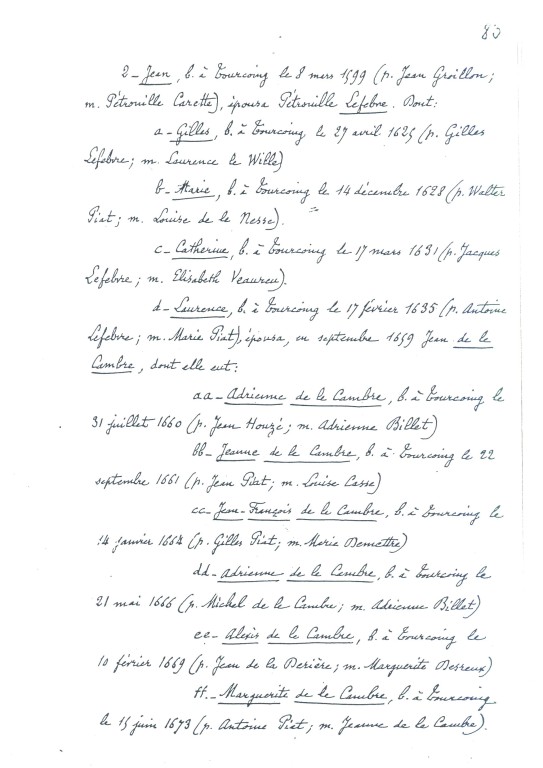 80
2- Jean, b. à Tourcoing le 8 mars 1599 (p. Jean Groillon;
m. Pétronille Carette), épousa Pétronille Lefebvre. Dont:
a- Gilles, b. à Tourcoing le 27 avril 1625 (p. Gilles
Lefebvre; m. Laurence le Wille)
b- Marie, b. à Tourcoing le 14 décembre 1628 (p. Walter
Piat; m. Louise de la Nesse).
c- Catherine, b. à Tourcoing le 17 mars 1631 (p. Jacques
Lefebvre; m. Elisabeth
d- Laurence, b. à Tourcoing le 17 février 1635 (p. Antoine
Lefebvre; m. Marie Piat), épousa, en septembre 1659 Jean de le
Cambre, dont elle eut:
aa- Adrienne de le Cambre, b. à Tourcoing le
31 juillet 1660 (p. Jean Houzé; m. Adrienne Billet)
bb- Jeanne de le Cambre, b. à Tourcoing le 22
septembre 1661 (p. Jean Piat; m. Louise Casse)
cc- Jean-François de le Cambre, b. à Tourcoing le
14 janvier 1664 (p. Gilles Piat; m. Marie Demettre)
dd- Adrienne de le Cambre, b. à Tourcoing le
21 mai 1666 (p. Michel de le Cambre; m. Adrienne Billet)
ee- Alexis de le Cambre, b. à Tourcoing le
10 février 1669 (p. Jean de le Derière; m. Marguerite Desreux)
ff- Marguerite de le Cambre, b. à Tourcoing
le 15 juin 1673 (p. Antoine Piat; m. Jeanne de le Cambre).